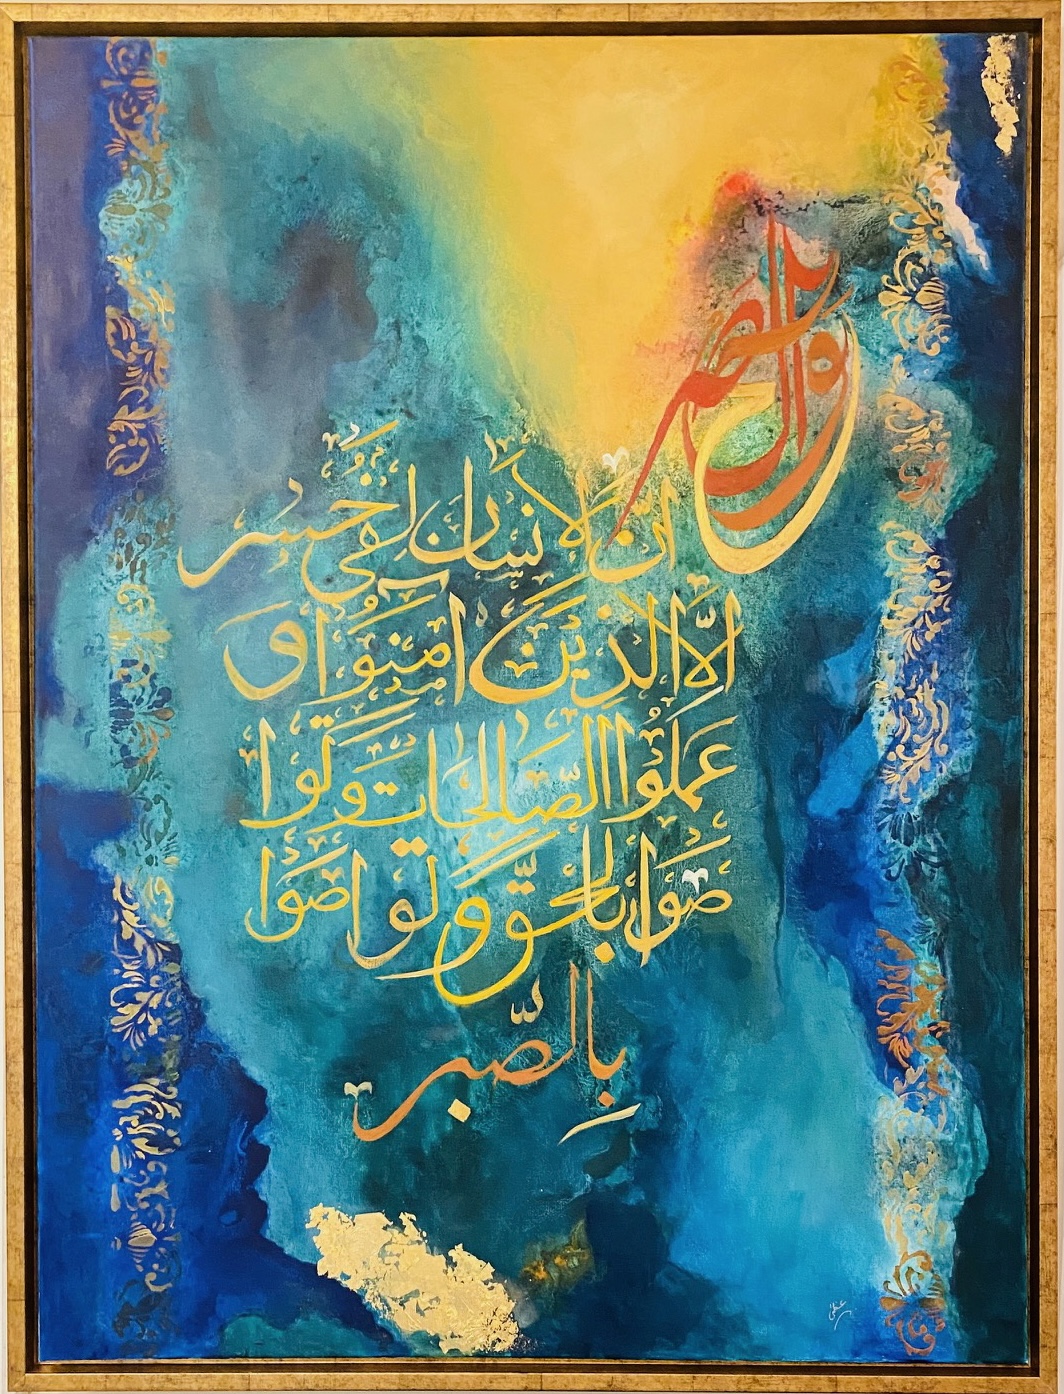 والعصر
اِنَّ الاِنسَانَ لَفِي خُسْرٍ
اِلَّا الَّذِيْنَ اٰمَنُوْا وَ
عَمِلُوا الصَّالِحَاتِ وَتَوَا
صَوْا بِالْحَقِّ وَتَوَاصَوْا
بِالصَّبْرِ